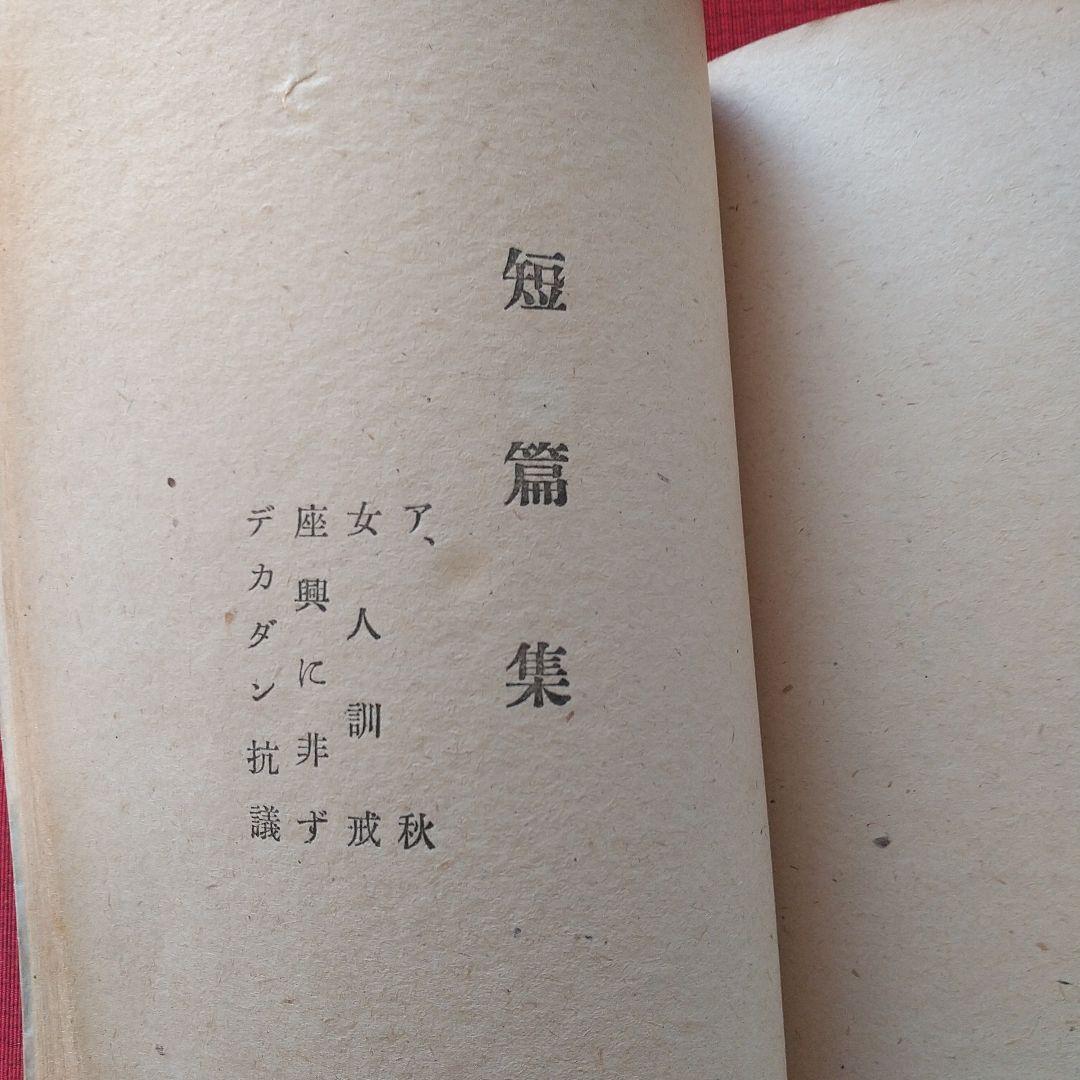 短篇集
ア、秋
女人訓戒
座興に非ず
デカダン抗議